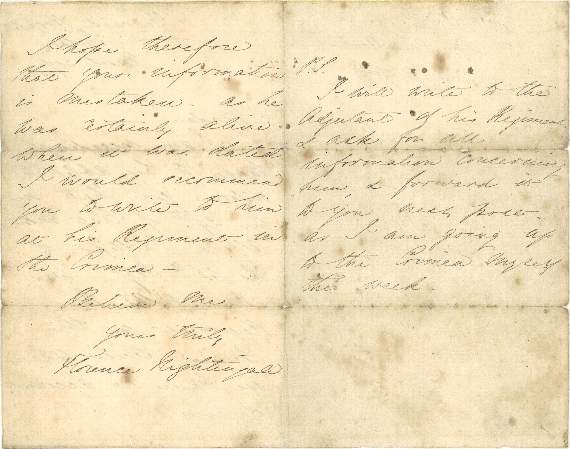 I hope therefore
that your information
is mistaken. as he
was certainly alive
when it was dated
I would recommend
you to write to him
at his Regiment in
the Crimea —
Believe me
yours truly
Florence Nightingale
P.S.
I will write to the
Adjutant of his Regiment
& ask for all
information concerning
him, & forward it
to you next post —
as I am going up
to the Crimea myself
this week.